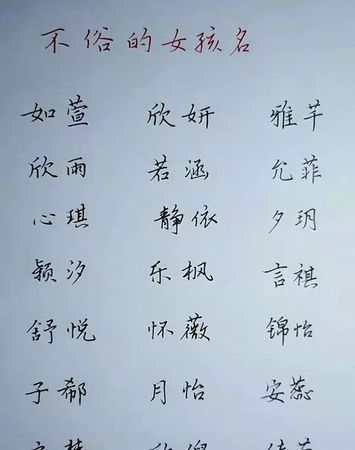 不俗的女孩名
如萱 欣妍 雅芊
欣雨 若涵 允菲
心琪 静依 夕玥
颖汐 乐枫 言祺
舒悦 怀薇 锦怡
子郗 月怡 安蕊